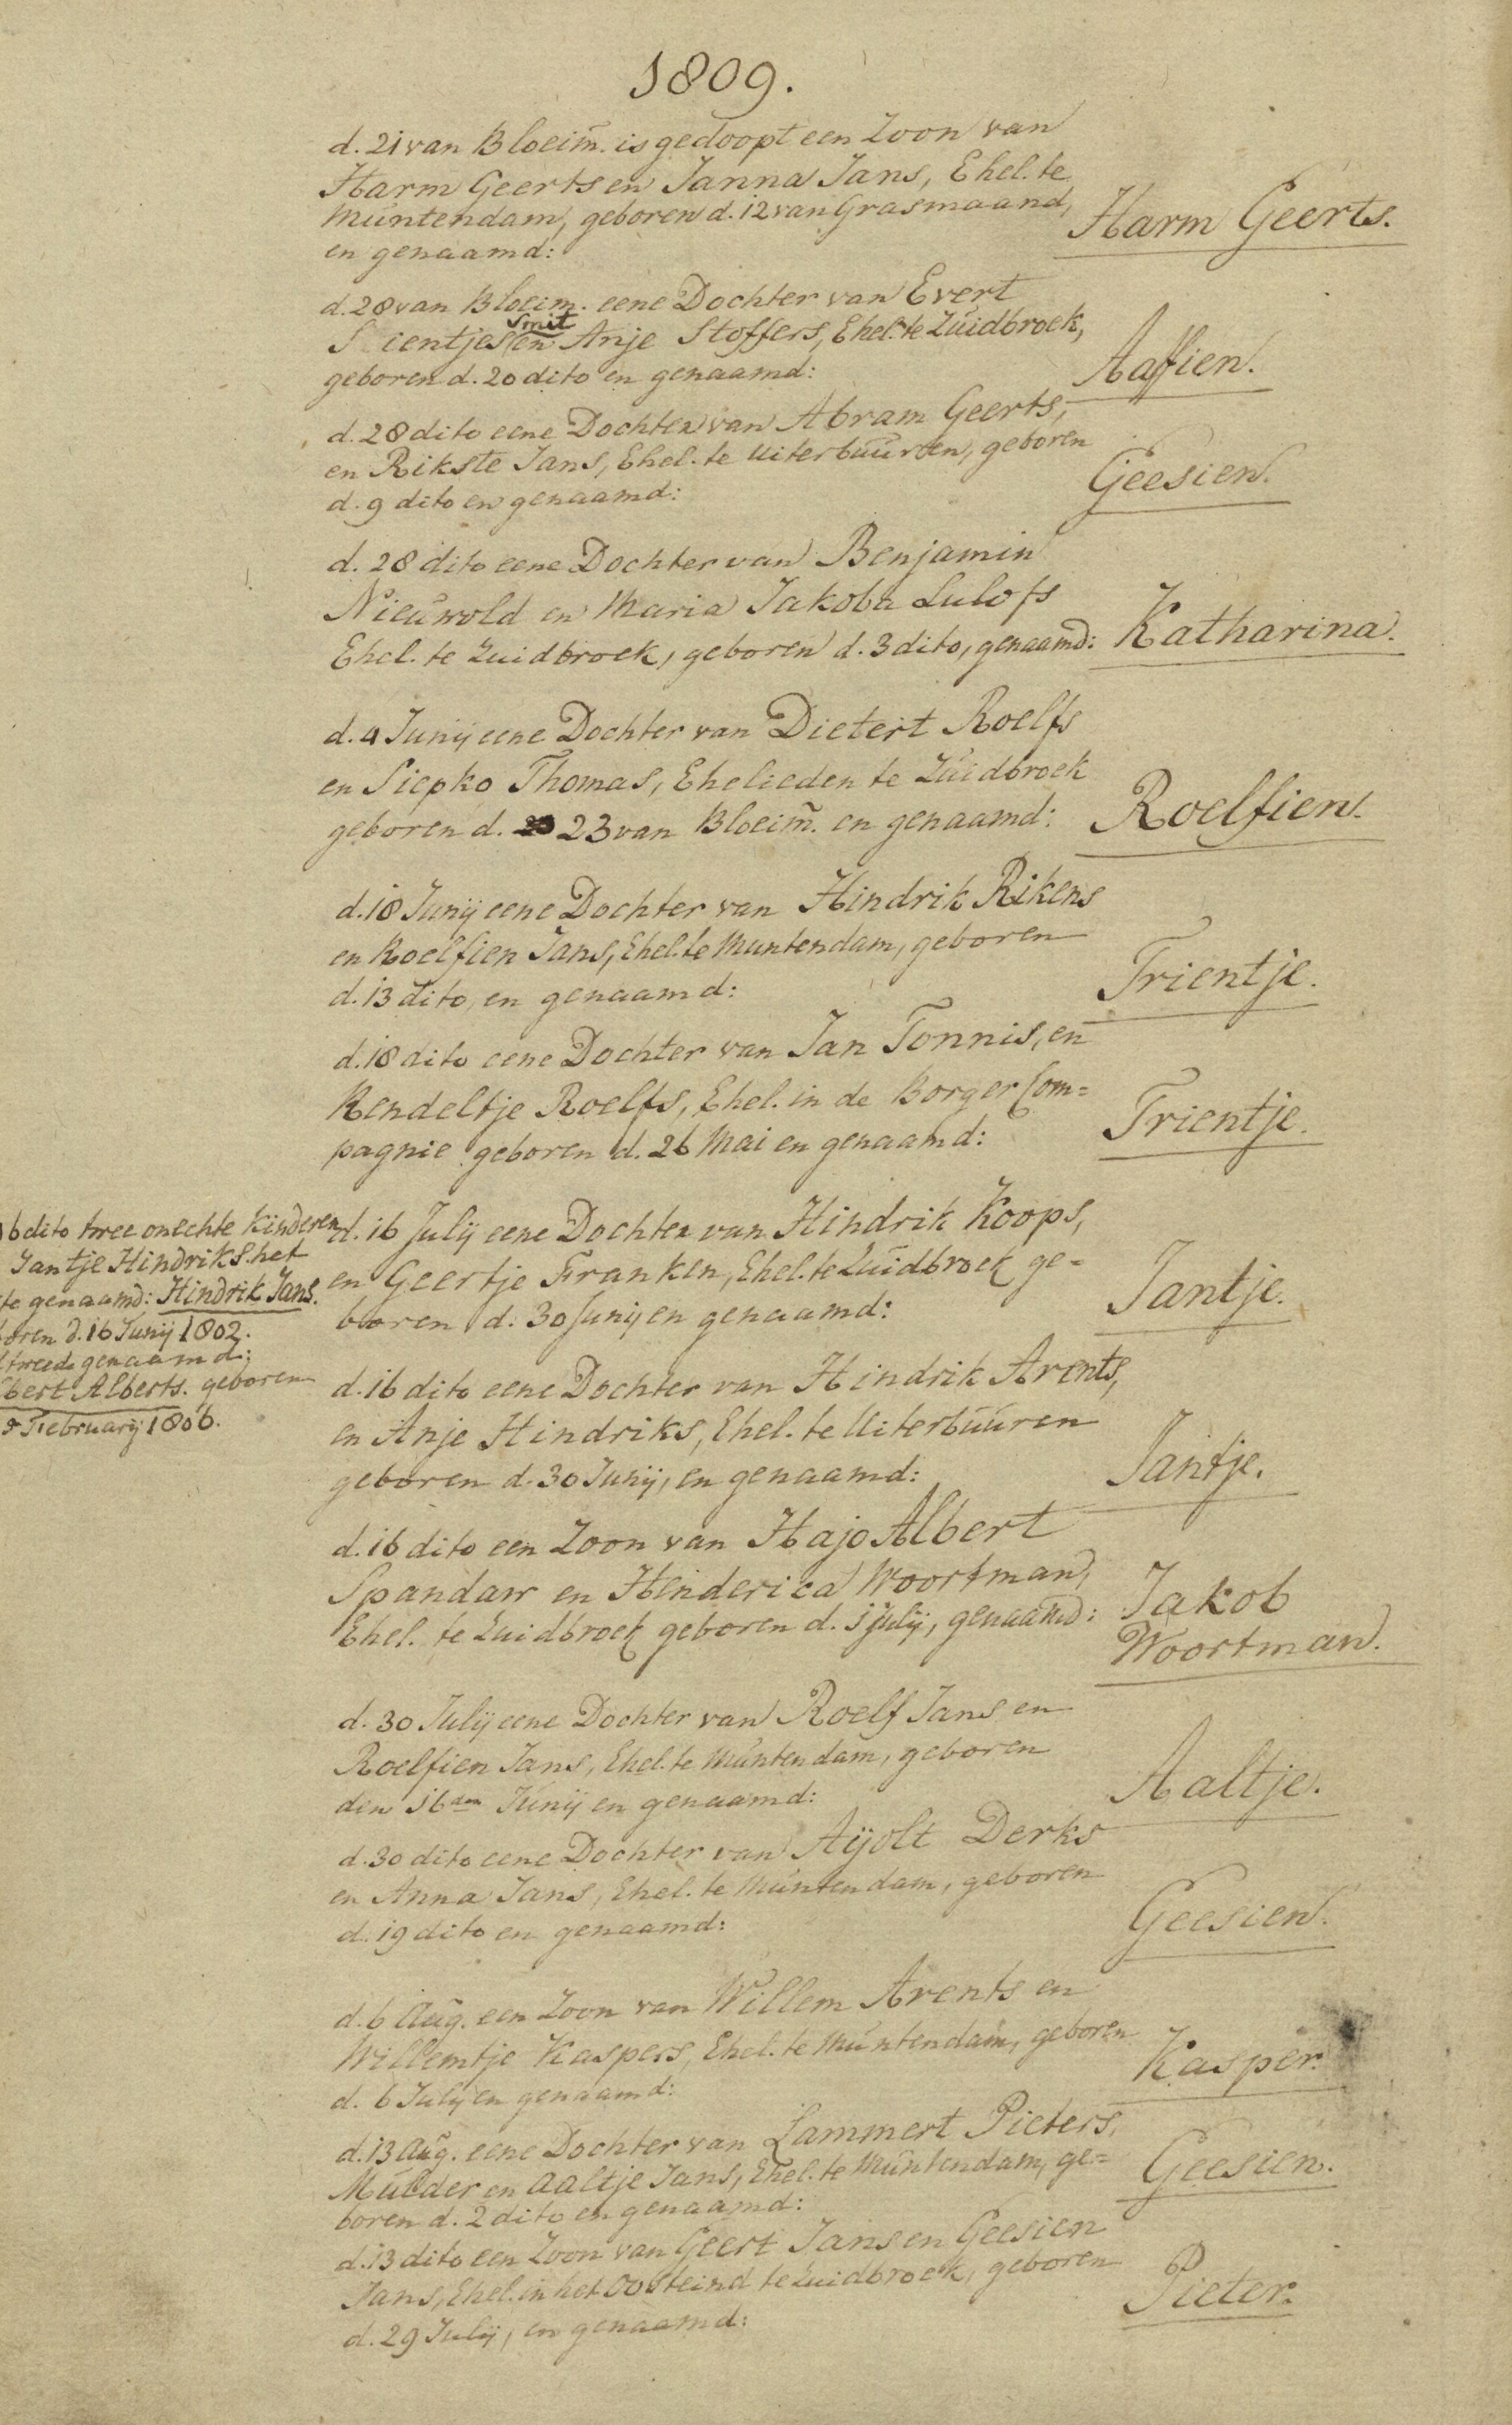 1809.
d. 21 van Bloeim. is gedoopt een Zoon van
Harm Geerts en Janna Jans, Ehel. te
Muntendam, geboren d. 12 van Grasmaand,
en genaamd:
Harm Geerts.
d. 28 van Bloeim. eene Dochter van Evert
Smit
Sientjes en Anje Stoffers, Ehel. te Zuidbroek,
geboren d. 20 dito en genaamd:
Aaffien.
d. 28 dito eene Dochter van Abram Geerts,
en Rikste Jans, Ehel. te Uiterbuuren, geboren
d. 9 dito en genaamd:
Geesien.
d. 28 dito eene Dochter van Benjamin
Nieuwold en Maria Jakoba Lulofs
Ehel. te Zuidbroek, geboren d. 3 dito, genaamd:
Katharina.
d. 4 Junij eene Dochter van Dietert Roelfs
en Siepko Thomas, Ehelieden te Zuidbroek
geboren d. 23 van Bloeim. en genaamd:
Roelfien.
d. 18 Junij eene Dochter van Hindrik Rikens
en Roelfien Jans, Ehel. te Muntendam, geboren
d. 13 dito, en genaamd:
Trientje.
d. 18 dito eene Dochter van Jan Tonnis, en
Rendeltje Roelfs, Ehel. in de Borger Com=
pagnie geboren d. 26 Mai en genaamd:
Trientje.
16 dito twee onechte Kinderen
Jantje Hindriks. het
te genaamd: Hindrik Jans.
boren d. 16 Junij 1802.
tweede genaamd:
bert Alberts. geboren
Februarij 1806.
d. 16 Julij eene Dochter van Hindrik Koops,
en Geertje Franken, Ehel. te Zuidbroek ge=
boren d. 30 Junij en genaamd:
Jantje.
d. 16 dito eene Dochter van Hindrik Arents,
en Anje Hindriks, Ehel. te Uiterbuuren
geboren d. 30 Junij, en genaamd:
Jantje.
d. 16 dito een Zoon van Hajo Albert
Spandaw en Henderica Woortman,
Ehel. te Zuidbroek geboren d. 1 Julij, genaamd:
Jakob
Woortman.
d. 30 Julij eene Dochter van Roelf Jans en
Roelfien Jans, Ehel. te Muntendam, geboren
den 16den Junij en genaamd:
Aaltje.
d. 30 dito eene Dochter van Aijolt Derks
en Anna Jans, Ehel. te Muntendam, geboren
d. 19 dito en genaamd:
Geesien.
d. 6 Aug. een Zoon van Willem Arents en
Willemtje Kaspers, Ehel. te Muntendam, geboren
d. 6 Julij en genaamd:
Kasper.
d. 13 Aug. eene Dochter van Lammert Pieters,
Mulder en Aaltje Jans, Ehel. te Muntendam, ge=
boren d. 2 dito en genaamd:
Geesien.
d. 13 dito een Zoon van Geert Jans en Geesien
Jans, Ehel. in het Oosteind te Zuidbroek, geboren
d. 29 Julij, en genaamd:
Pieter.